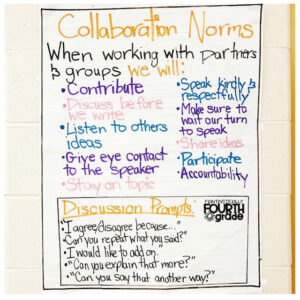 Collaboration Norms
When working with partners
& groups we will:
• Contribute
• Discuss before
we write
• Listen to others
ideas
• Give eye contact
to the speaker
• Stay on topic
• Speak kindly &
respectfully
• Make sure to
wait our turn
to speak
• Share ideas
• Participate
• Accountability
Discussion Prompts:
• "I agree/disagree because..."
• "Can you repeat what you said?"
• "I would like to add on."
• "Can you explain that more?"
• "Can you say that another way?"
FOURTH
grade